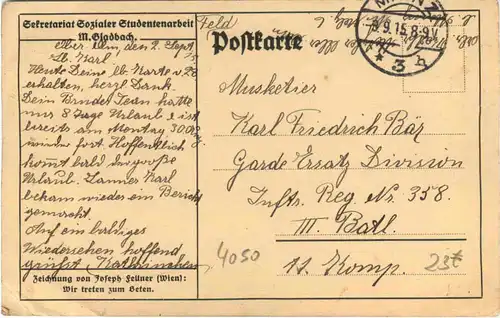 Sekretariat Sozialer Studentenarbeit
M. Gladbach.
Feld
Postkarte
MAINZ
3.9.15. 8-9V.
* 3 h
den 2. Sept.
Lb. Karl!
Heute Deine lb. Karte v. 28
erhalten, herzl. Dank.
Dein Bruder Jean hatte
nur 8 Tage Urlaub & ist
bereits am Montag 30.
wieder fort. Hoffentlich
kommt bald der große
Urlaub. Karl
bekam wieder ein Bericht
gemacht.
Auf ein baldiges
Wiedersehen hoffend
grüßt Kathrinchen
Zeichnung von Joseph Feilner (Wien):
Wir treten zum Beten.
Musketier
Karl Friedrich Bär
Garde Ersatz Division
Inftr. Reg. Nr. 358.
III. Batl.
11. Komp.
4050
23€